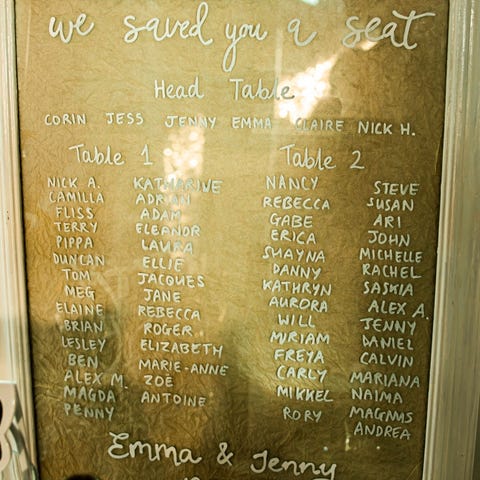 we saved you a seat
Head Table
CORIN JESS JENNY EMMA CLAIRE NICK H.
Table 1
NICK A.
CAMILLA
FLISS
TERRY
PIPPA
DUNCAN
TOM
MEG
ELAINE
BRIAN
LESLEY
BEN
ALEX M.
MAGDA
PENNY
KATHARINE
ADRIAN
ADAM
ELEANOR
LAURA
ELLIE
JACQUES
JANE
REBECCA
ROGER
ELIZABETH
MARIE-ANNE
ZOË
ANTOINE
Table 2
NANCY
REBECCA
GABE
ERICA
SHAYNA
DANNY
KATHRYN
AURORA
WILL
MIRIAM
FREYA
CARLY
MIKKEL
RORY
STEVE
SUSAN
ARI
JOHN
MICHELLE
RACHEL
SASKIA
ALEX A.
JENNY
DANIEL
CALVIN
MARIANA
NAIMA
MAGNUS
ANDREA
Emma & Jenny